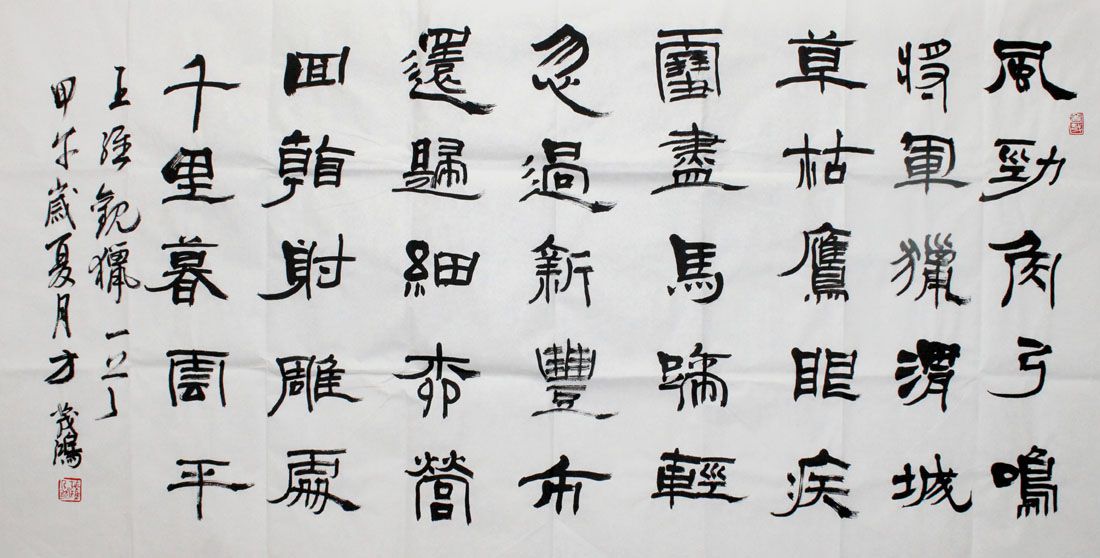 風勁角弓鳴
将軍獵渭城
草枯鷹眼疾
雪盡馬蹄輕
忽過新豐市
還歸細柳營
回看射雕處
千里暮雲平
王維觀獵一首
甲午歲夏月方茂鴻